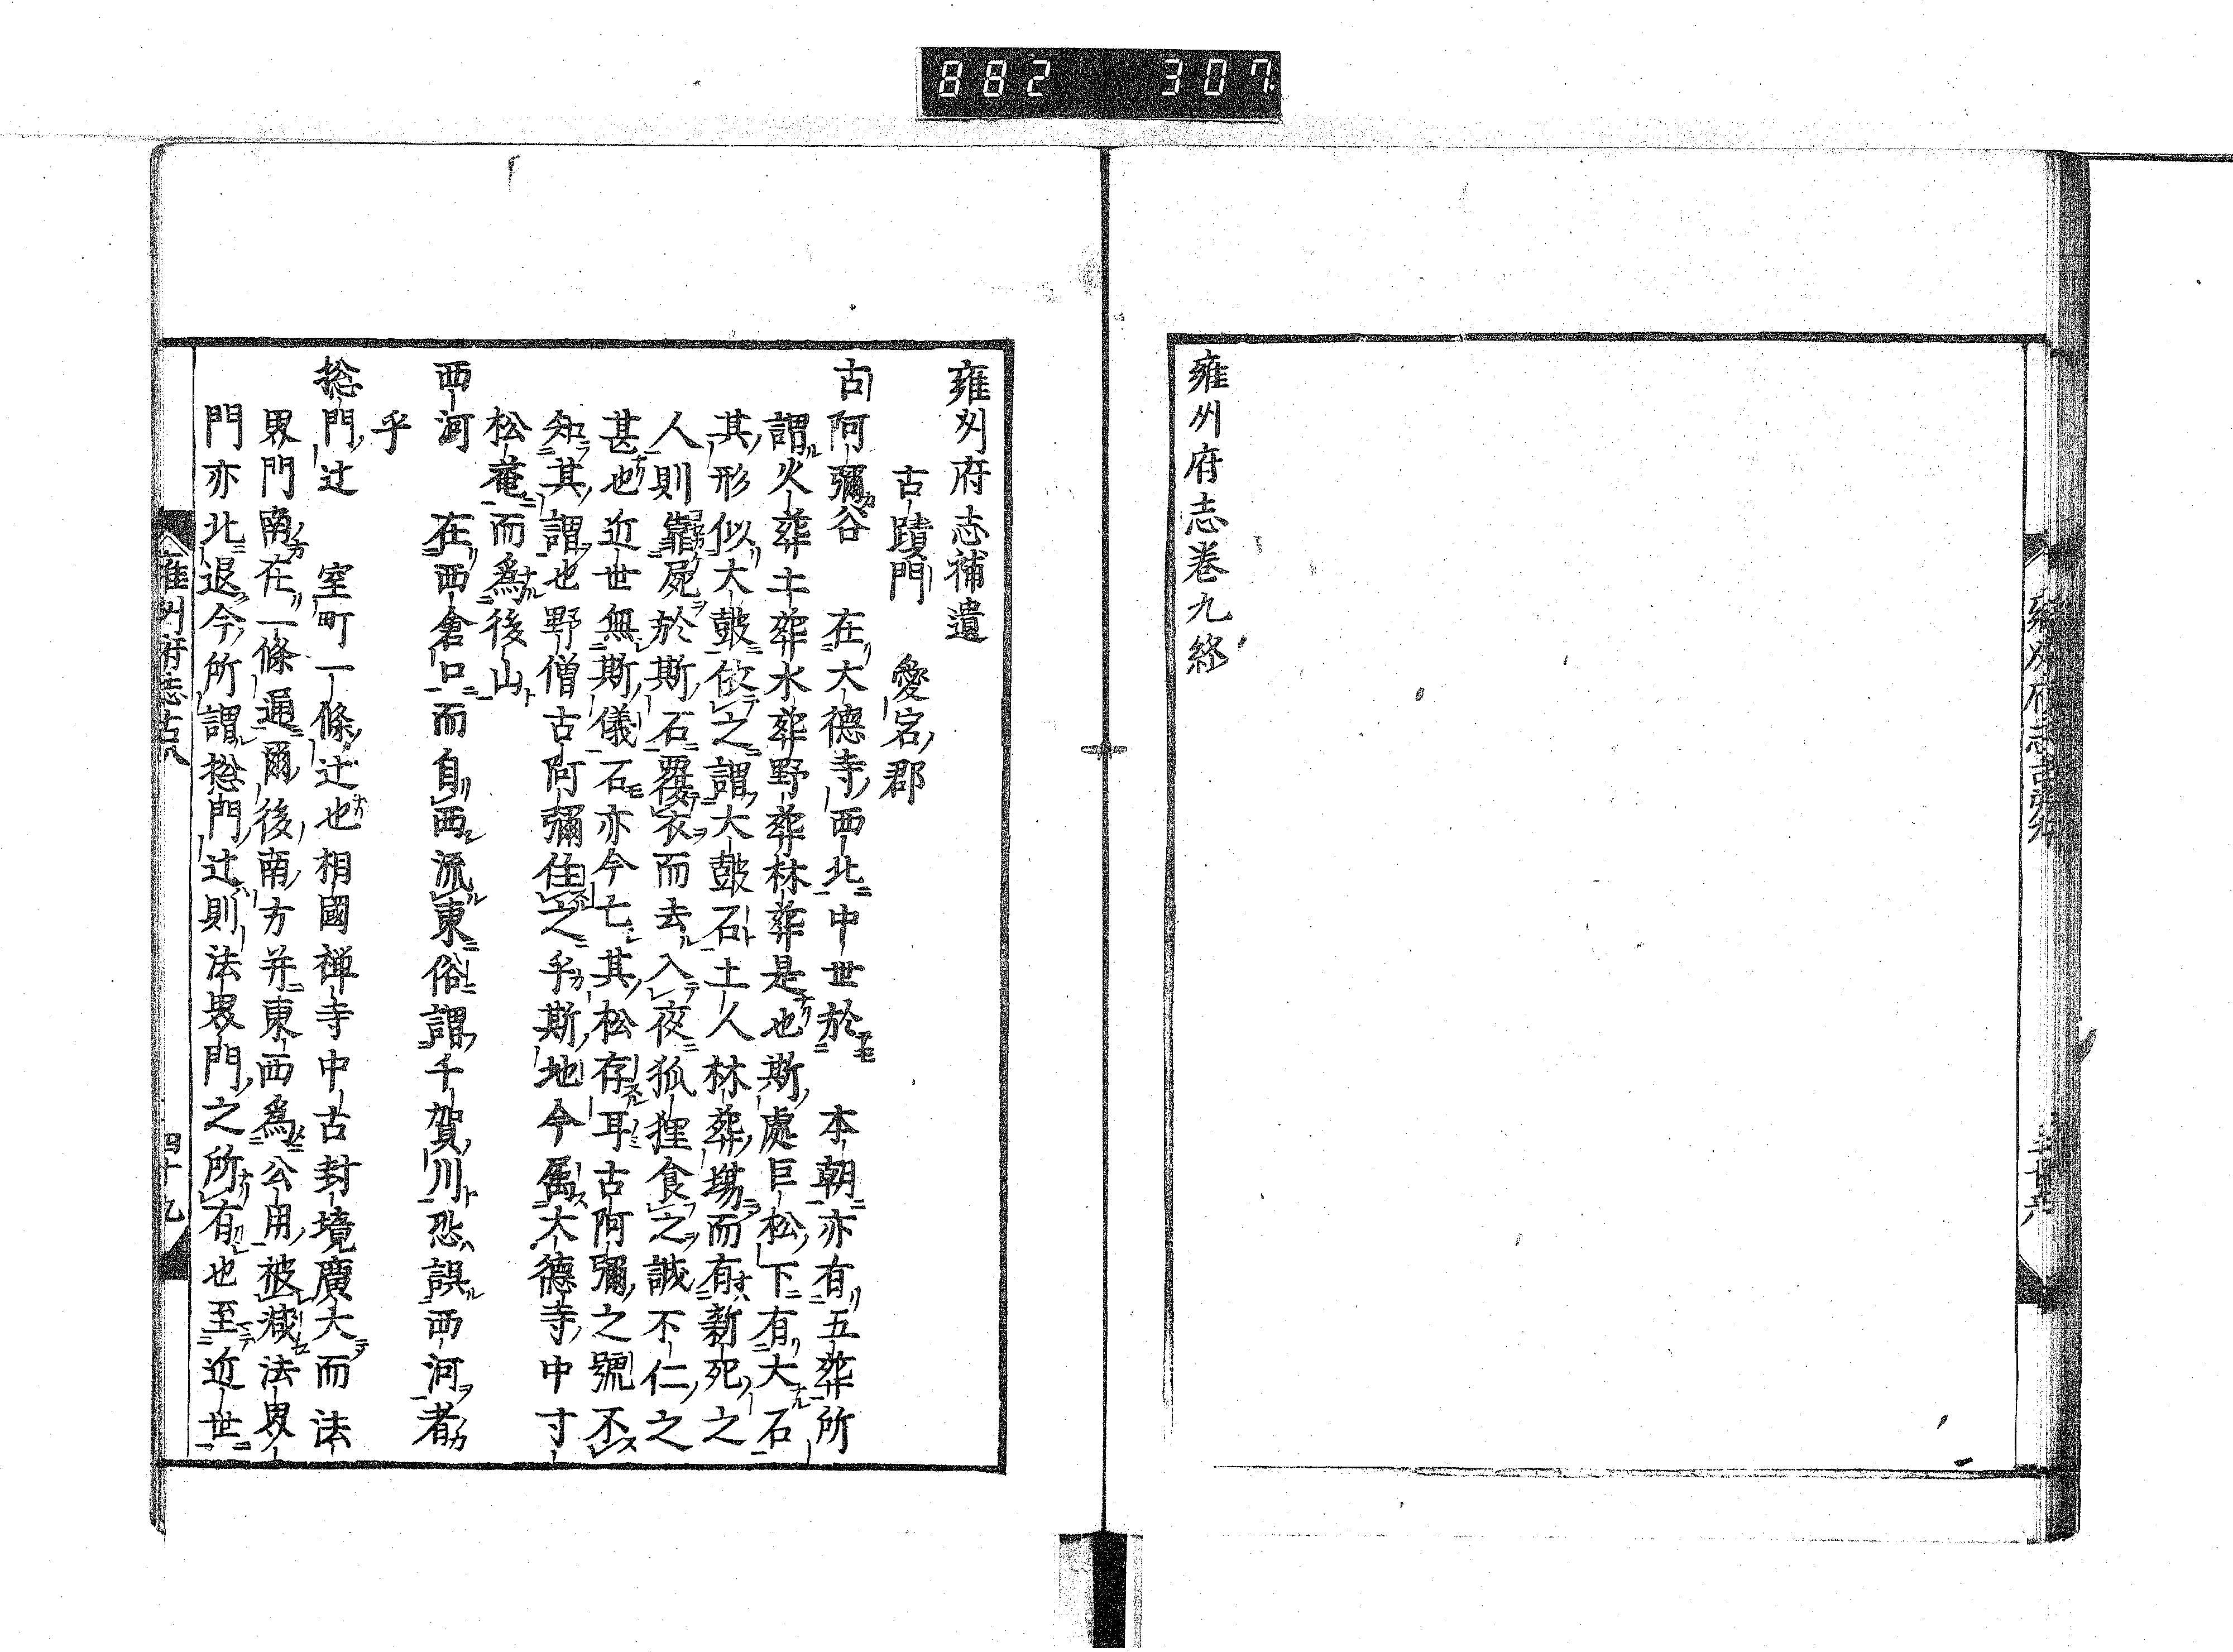 882 307
雍州府志巻九終
雍州府志補遺
古蹟門 愛宕郡
古阿彌谷 在大德寺西北中世於 本朝亦有五葬所
謂火葬土葬水葬野葬林葬是也斯處巨松下有大石
其形似大鼓依之謂大鼓石土人林葬場而有新死之
人則靠屍於斯石覆衣而去入夜狐狸食之誠不仁之
甚也近世無斯儀石亦今亡其松存耳古阿彌之號不
知其謂也野僧古阿彌住之乎斯地今属大德寺中寸
松菴而為後山
西河 在西倉口而自西流東俗謂千賀川恐誤西河者
乎
捴門辻 室町一條辻也相國禅寺中古封境廣大而法
界門南在一條邊爾後南方并東西為公用被減法界
門亦北退今所謂捴門辻則法界門之所有也至近世
雍州府志古八 四十九